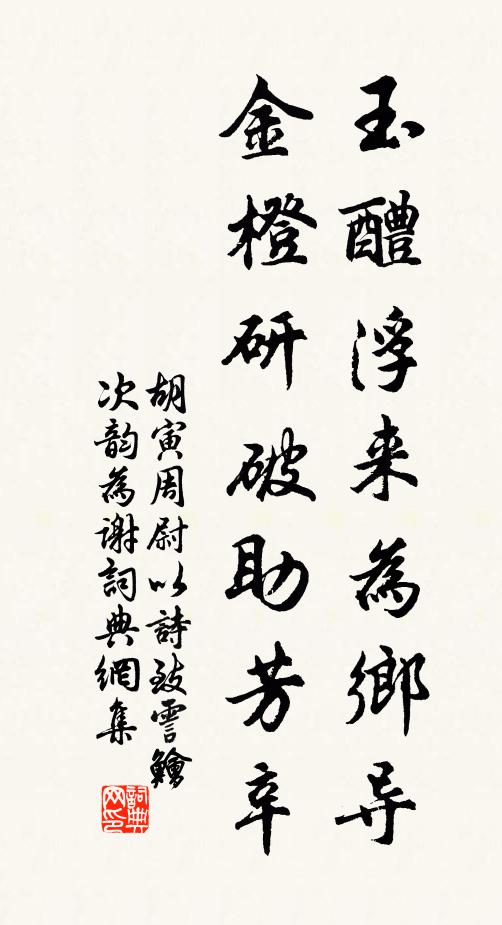 玉醴浮来為鄉导
金橙研破助芳辛
胡寅周尉以詩致雪鱠
次韵為謝詞典網集
詞典网印